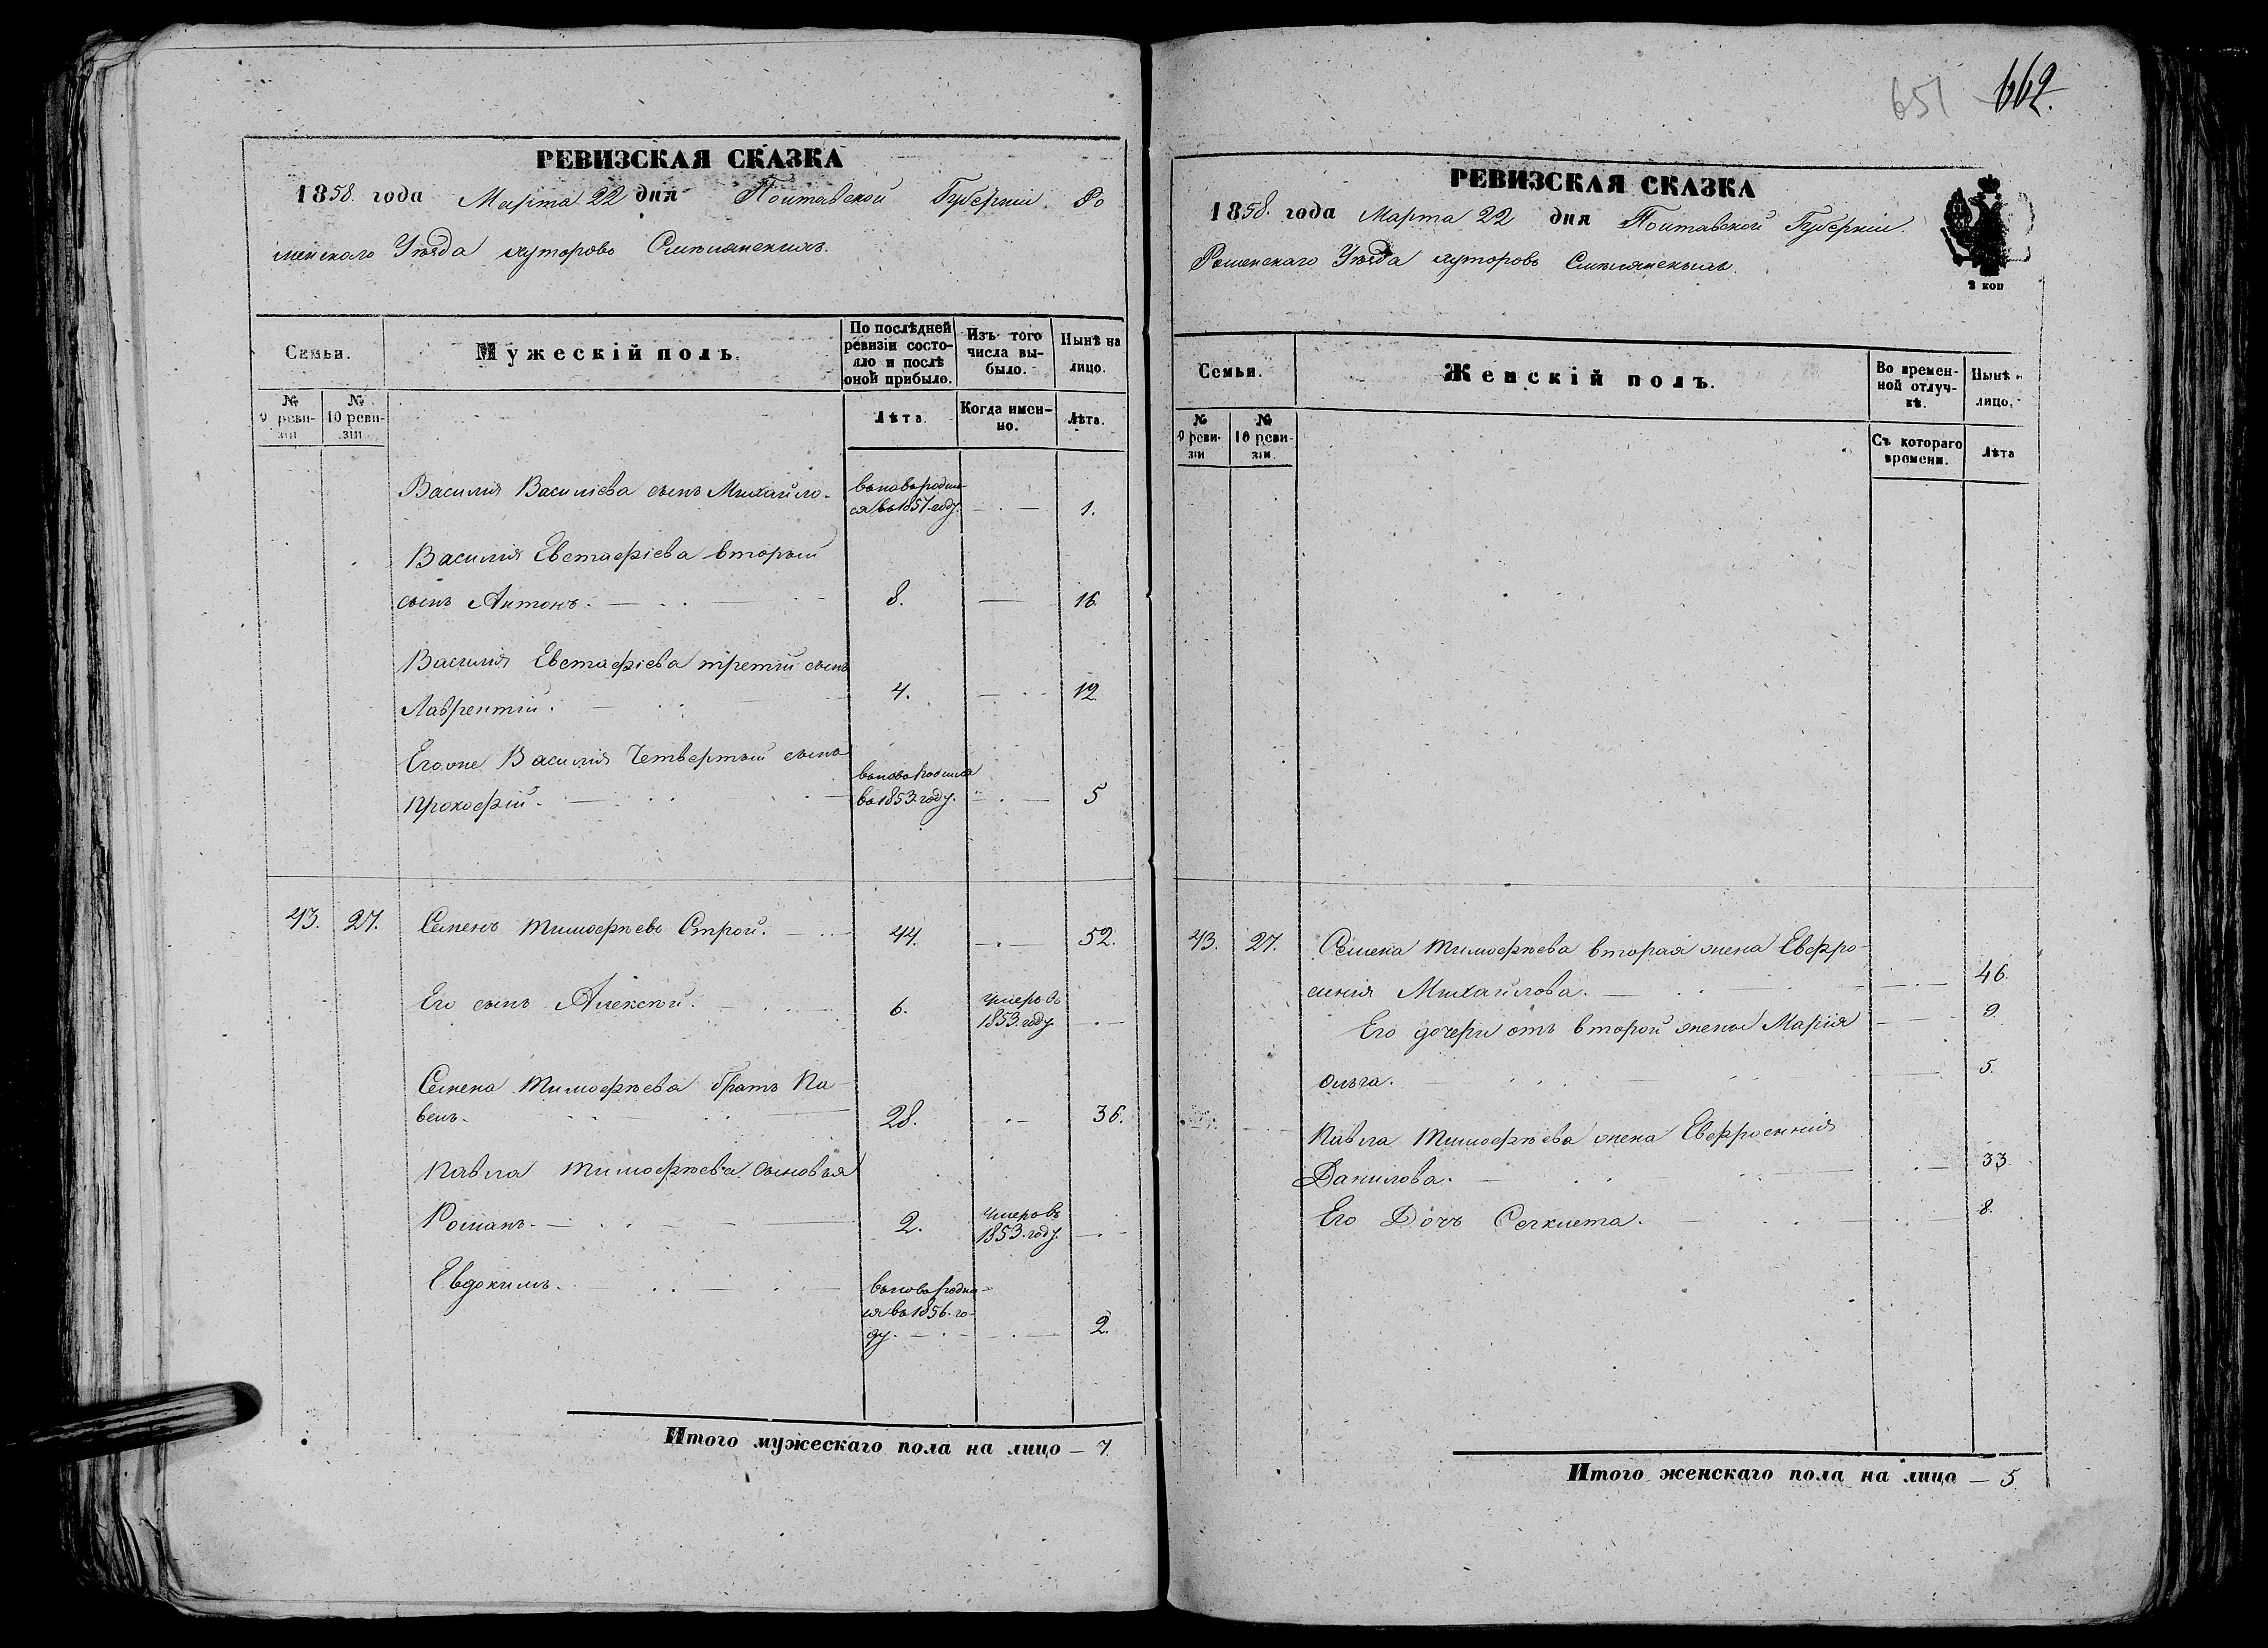 651 662.
РЕВИЗСКАЯ СКАЗКА
1858. года Марта 22 дня Полтавской Губерніи Ро
менского Уѣзда хуторовъ Смѣлянскихъ.
Семьи.
Мужескій полъ.
По послѣдней ревизіи состояло и послѣ оной прибыло.
Изъ того числа выбыло.
Нынѣ на лицо.
№ 9 ревизіи
№ 10 ревизіи
Лѣта.
Когда именно.
Лѣта.
Василія Василіева сынъ Михайло - вновь родил-
ся въ 1857 году. 1.
Василія Евстафіева вторый
сынъ Антонъ. 8. 16.
Василія Евстафіева третій сынъ
Лаврентій. 4. 12
Его же Василія Четвертый сынъ вновь родился
Прокофій. въ 1853 году. 5
43. 27. Семенъ Тимофѣевъ Строй. 44. 52.
Его сынъ Алексѣй. 6. умеръ въ
1853. году.
Семена Тимофѣева братъ Па-
велъ. 28. 36.
Павла Тимофѣева сыновья
Романъ. 2. умеръ въ
1853. году.
Евдокимъ. вновь родил-
ся въ 1856. го-
ду. 2.
Итого мужескаго пола на лицо - 7
РЕВИЗСКАЯ СКАЗКА
1858. года Марта 22 дня Полтавской Губерніи.
Роменскаго Уѣзда хуторовъ Смѣлянскихъ.
2 коп
Семьи.
Женскій полъ.
Во временной отлучкѣ.
Нынѣ
лицо.
№ 9 ревизіи
№ 10 ревизіи.
Съ котораго времени.
Лѣта
43. 27. Семена Тимофѣева вторая жена Евфро-
синія Михайлова. 46.
Его дочери отъ второй жены Марія 9
Ольга. 5.
Павла Тимофѣева жена Евфросинія
Данилова. 33.
Его Дочь 8.
Итого женскаго пола на лицо - 5.